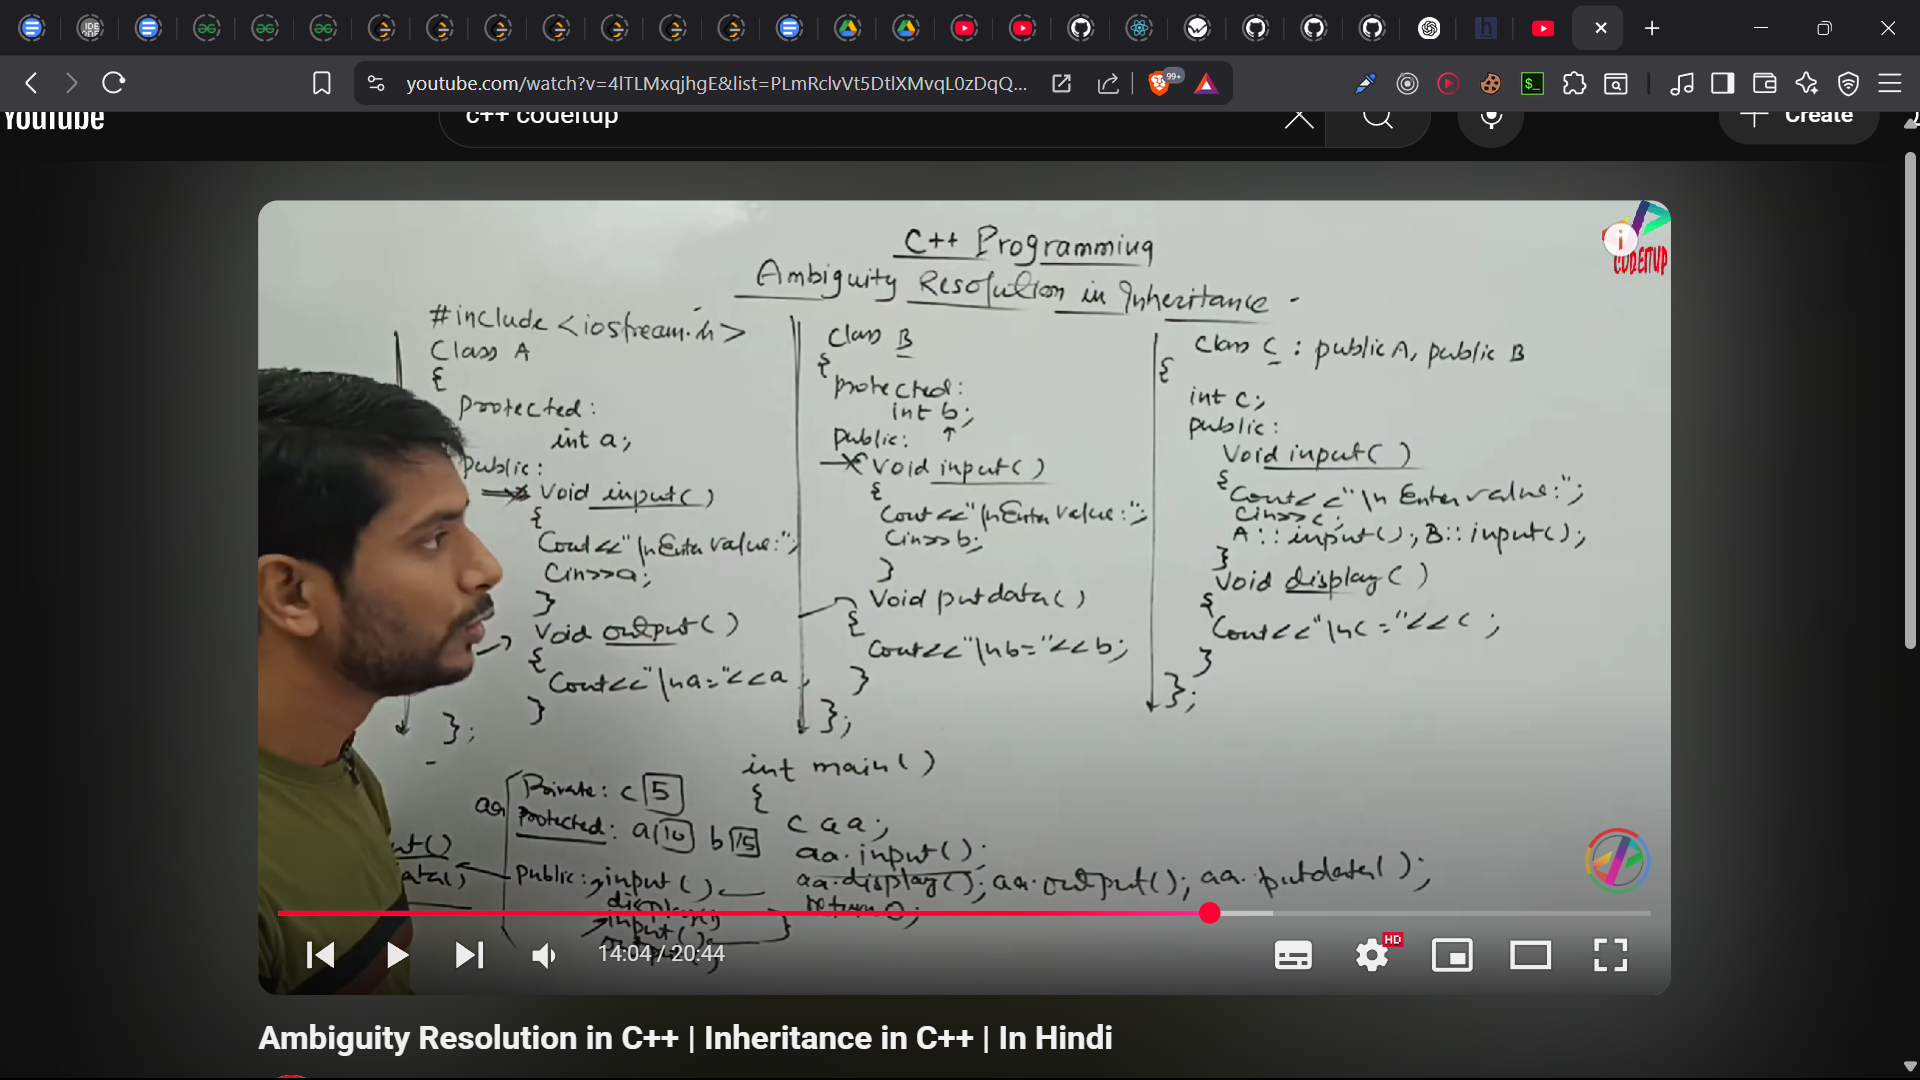 youtube.com/watch?v=4lTLMxqjhgE&list=PLmRclvVt5DtlXMvqL0zDqQ...
99+
YouTube
c++ codeitup
Create
CODEITUP
C++ Programming
Ambiguity Resolution in Inheritance -
#include <iostream.h>
Class A
{
protected:
int a;
public:
Void input()
{
Cout<<"\nEnter value:";
Cin>>a;
}
Void output()
{
Cout<<"\na="<<a
}
};
Class B
{
protected:
int b;
public:
Void input()
{
Cout<<"\nEnter value:";
Cin>>b;
}
Void putdata()
{
Cout<<"\nb="<<b;
}
};
Class C : public A, public B
{
int c;
public:
Void input()
{
Cout<<"\n Enter value:";
Cin>>c;
A::input(); B::input();
}
Void display()
{
Cout<<"\nc="<<c;
}
};
int main()
{
C aa;
aa.input();
aa.display(); aa.output(); aa.putdata();
return 0;
aa
Private: c 5
Protected: a 10 b 15
Public: input()
display()
input()
14:04 / 20:44
HD
Ambiguity Resolution in C++ | Inheritance in C++ | In Hindi